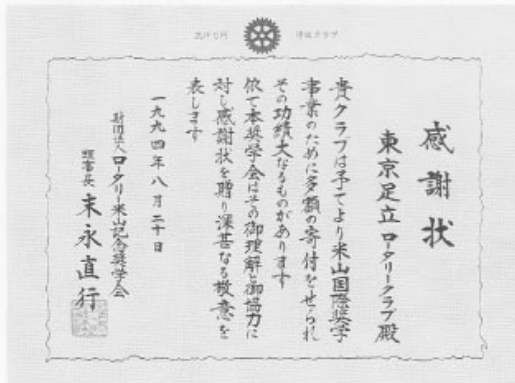 感謝状
東京足立ロータリークラブ殿
貴クラブは予てより米山国際奨学
事業のために多額の寄付をせられ
その功績大なるものがあります
依て本奨学会はその御理解と御協力に
対し感謝状を贈り深甚なる敬意を
表します
一九九四年八月二十日
財団法人ロータリー米山記念奨学会
理事長 末永直行